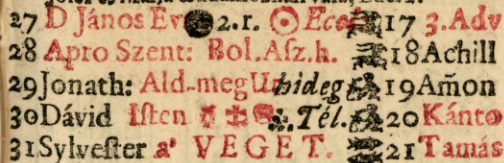 27 D János Ev 2. r. Ecol 17 3. Adv
28 Apro Szent: Bol. Aſz. h. 18 Achill
29 Jonath: Ald-meg Ur hideg 19 Am̃on
30 Dávid Iſten Tél. 20 Kánto
31 Sylveſter a' VEGET. 21 Tamás